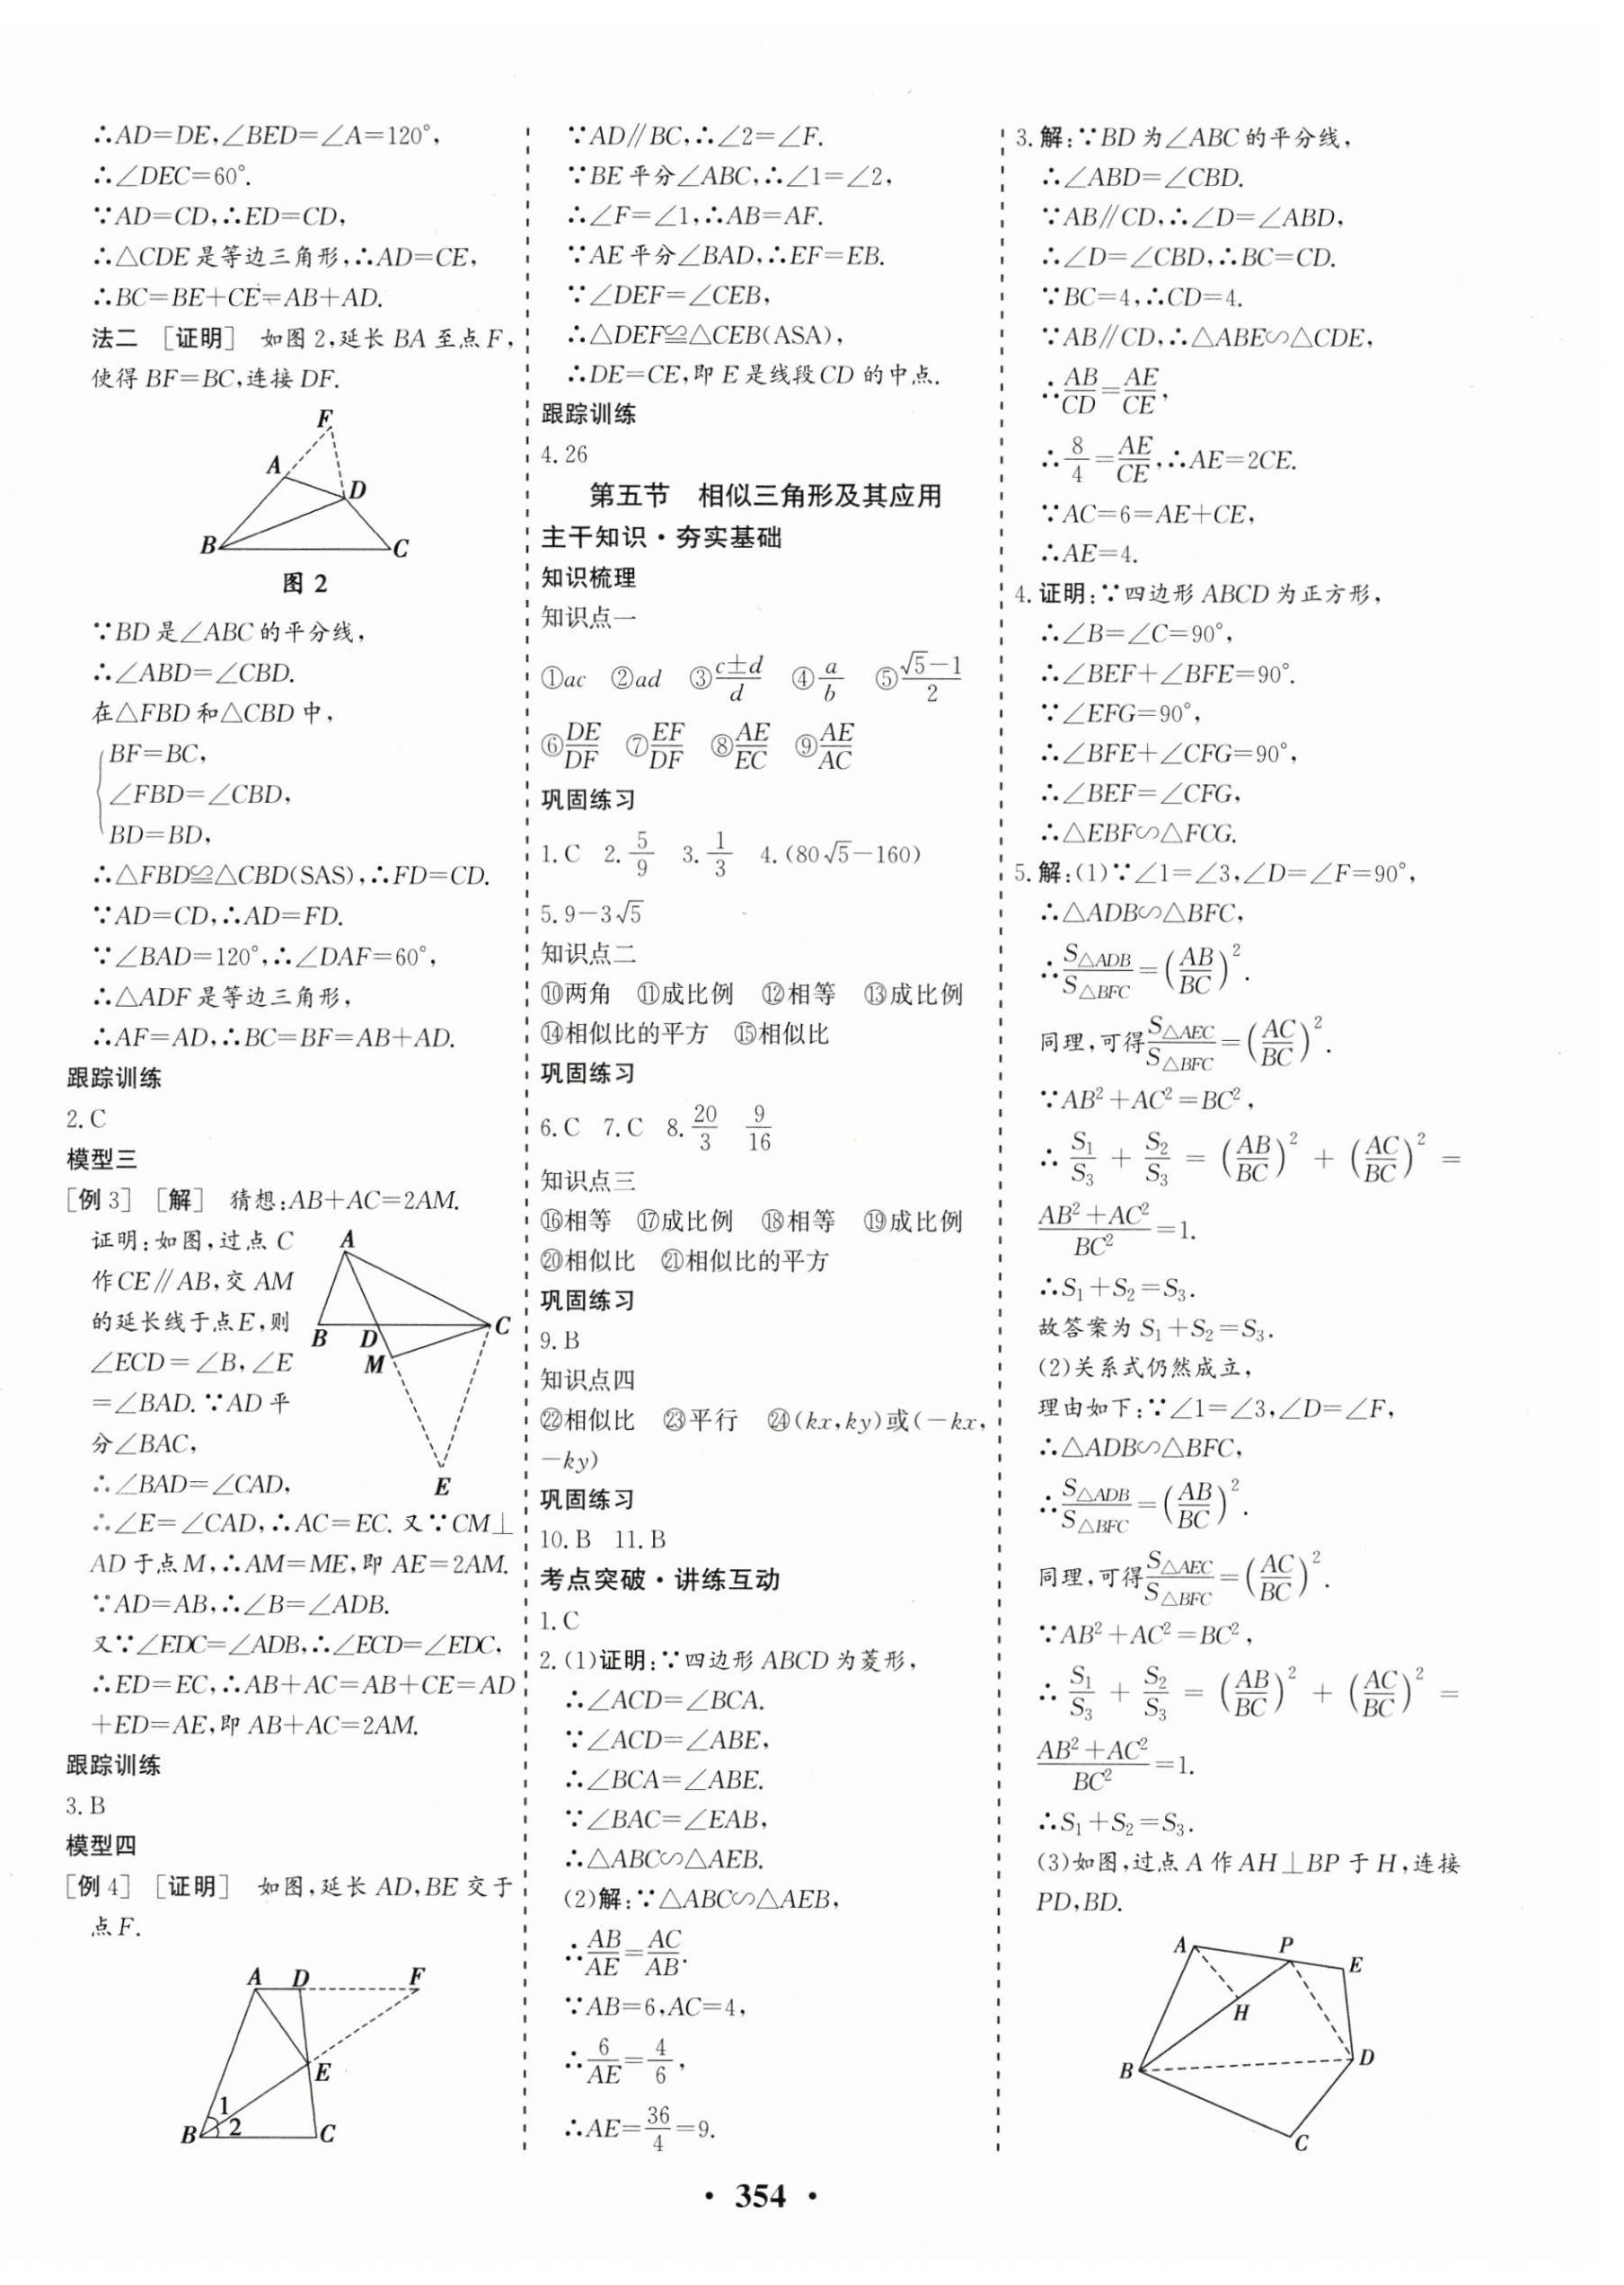 ∴AD=DE,∠BED=∠A=120°,
∴∠DEC=60°.
∵AD=CD,∴ED=CD,
∴△CDE是等边三角形,∴AD=CE,
∴BC=BE+CE=AB+AD.
法二 [证明] 如图2,延长BA至点F,
使得BF=BC,连接DF.
F
A
D
B
C
图2
∵BD是∠ABC的平分线,
∴∠ABD=∠CBD.
在△FBD和△CBD中,
BF=BC,
∠FBD=∠CBD,
BD=BD,
∴△FBD≌△CBD(SAS),∴FD=CD.
∵AD=CD,∴AD=FD.
∵∠BAD=120°,∴∠DAF=60°,
∴△ADF是等边三角形,
∴AF=AD,∴BC=BF=AB+AD.
跟踪训练
2.C
模型三
[例3] [解] 猜想:AB+AC=2AM.
证明:如图,过点C
作CE∥AB,交AM
的延长线于点E,则
∠ECD=∠B,∠E
=∠BAD.∵AD平
分∠BAC,
∴∠BAD=∠CAD,
A
B
D
C
M
E
∴∠E=∠CAD,∴AC=EC.又∵CM⊥
AD于点M,∴AM=ME,即AE=2AM.
∵AD=AB,∴∠B=∠ADB.
又∵∠EDC=∠ADB,∴∠ECD=∠EDC,
∴ED=EC,∴AB+AC=AB+CE=AD
+ED=AE,即AB+AC=2AM.
跟踪训练
3.B
模型四
[例4] [证明] 如图,延长AD,BE交于
点F.
A D F
E
1
2
B C
∵AD∥BC,∴∠2=∠F.
∵BE平分∠ABC,∴∠1=∠2,
∴∠F=∠1,∴AB=AF.
∵AE平分∠BAD,∴EF=EB.
∵∠DEF=∠CEB,
∴△DEF≌△CEB(ASA),
∴DE=CE,即E是线段CD的中点.
跟踪训练
4.26
第五节 相似三角形及其应用
主干知识·夯实基础
知识梳理
知识点一
①ac ②ad ③(c±d)/d ④a/b ⑤(√5−1)/2
⑥DE/DF ⑦EF/DF ⑧AE/EC ⑨AE/AC
巩固练习
1.C 2.5/9 3.1/3 4.(80√5−160)
5.9−3√5
知识点二
⑩两角 ⑪成比例 ⑫相等 ⑬成比例
⑭相似比的平方 ⑮相似比
巩固练习
6.C 7.C 8.20/3 9/16
知识点三
⑯相等 ⑰成比例 ⑱相等 ⑲成比例
⑳相似比 ㉑相似比的平方
巩固练习
9.B
知识点四
㉒相似比 ㉓平行 ㉔(kx,ky)或(−kx,
−ky)
巩固练习
10.B 11.B
考点突破·讲练互动
1.C
2.(1)证明:∵四边形ABCD为菱形,
∴∠ACD=∠BCA.
∵∠ACD=∠ABE,
∴∠BCA=∠ABE.
∵∠BAC=∠EAB,
∴△ABC∽△AEB.
(2)解:∵△ABC∽△AEB,
∴AB/AE=AC/AB.
∵AB=6,AC=4,
∴6/AE=4/6,
∴AE=36/4=9.
3.解:∵BD为∠ABC的平分线,
∴∠ABD=∠CBD.
∵AB∥CD,∴∠D=∠ABD,
∴∠D=∠CBD,∴BC=CD.
∵BC=4,∴CD=4.
∵AB∥CD,∴△ABE∽△CDE,
∴AB/CD=AE/CE,
∴8/4=AE/CE,∴AE=2CE.
∵AC=6=AE+CE,
∴AE=4.
4.证明:∵四边形ABCD为正方形,
∴∠B=∠C=90°,
∴∠BEF+∠BFE=90°.
∵∠EFG=90°,
∴∠BFE+∠CFG=90°,
∴∠BEF=∠CFG,
∴△EBF∽△FCG.
5.解:(1)∵∠1=∠3,∠D=∠F=90°,
∴△ADB∽△BFC,
∴S△ADB/S△BFC=(AB/BC)².
同理,可得S△AEC/S△BFC=(AC/BC)².
∵AB²+AC²=BC²,
∴S₁/S₃+S₂/S₃=(AB/BC)²+(AC/BC)²=
(AB²+AC²)/BC²=1.
∴S₁+S₂=S₃.
故答案为S₁+S₂=S₃.
(2)关系式仍然成立,
理由如下:∵∠1=∠3,∠D=∠F,
∴△ADB∽△BFC,
∴S△ADB/S△BFC=(AB/BC)².
同理,可得S△AEC/S△BFC=(AC/BC)².
∵AB²+AC²=BC²,
∴S₁/S₃+S₂/S₃=(AB/BC)²+(AC/BC)²=
(AB²+AC²)/BC²=1.
∴S₁+S₂=S₃.
(3)如图,过点A作AH⊥BP于H,连接
PD,BD.
A P E
H
B D
C
· 354 ·